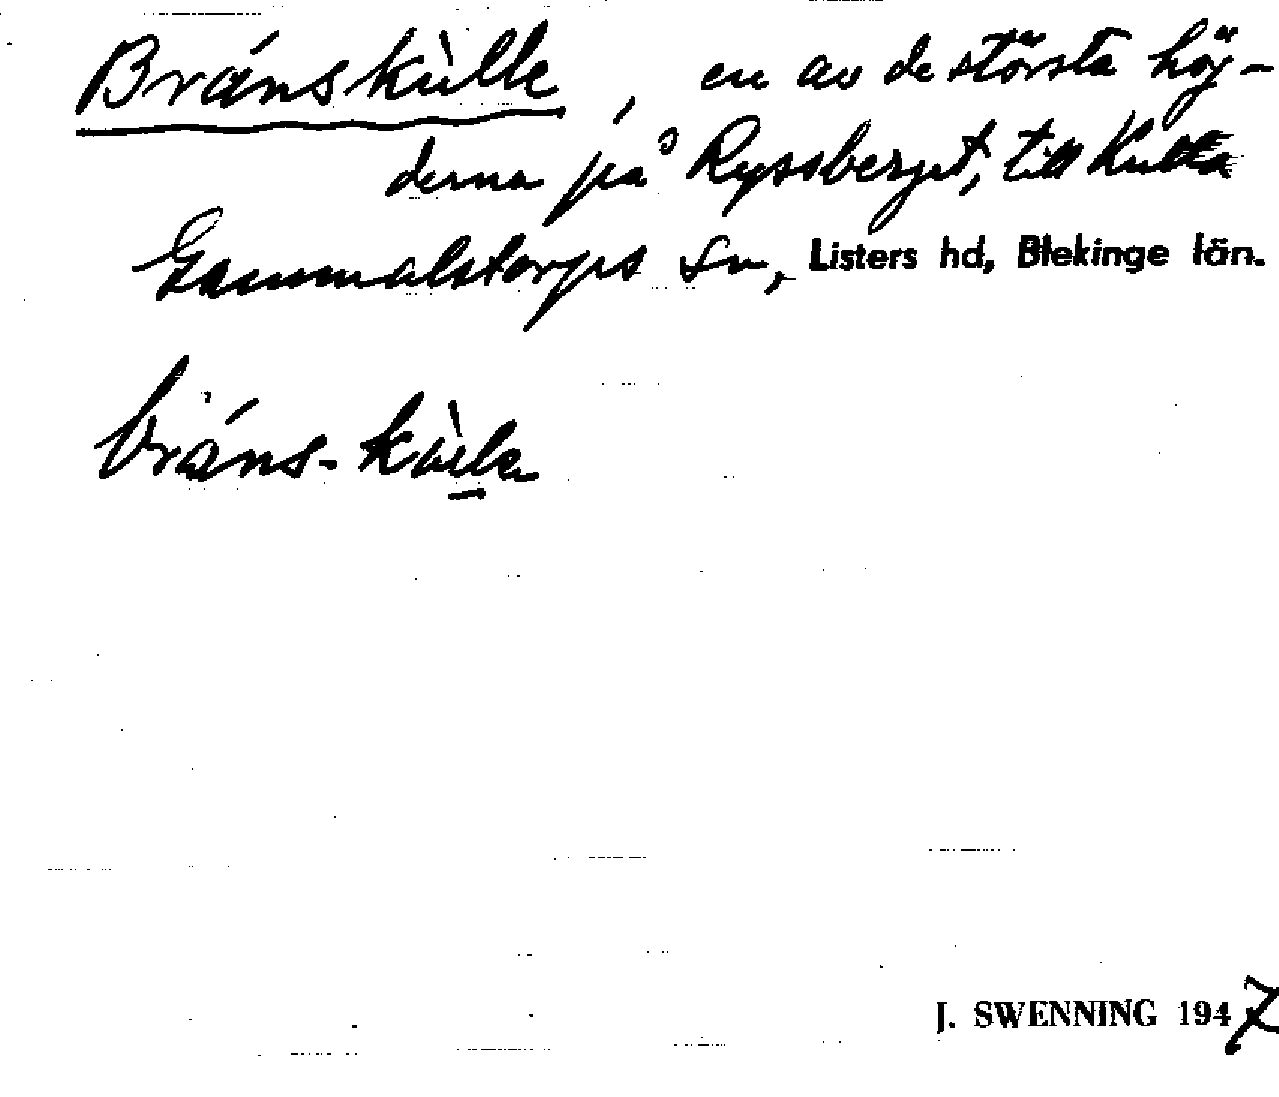 Bránskùlle, en av de största höj-
derna på Ryssberget, till Kulla
Gammalstorps sn, Listers hd, Blekinge län.
bráns-kùla
J. SWENNING 1947